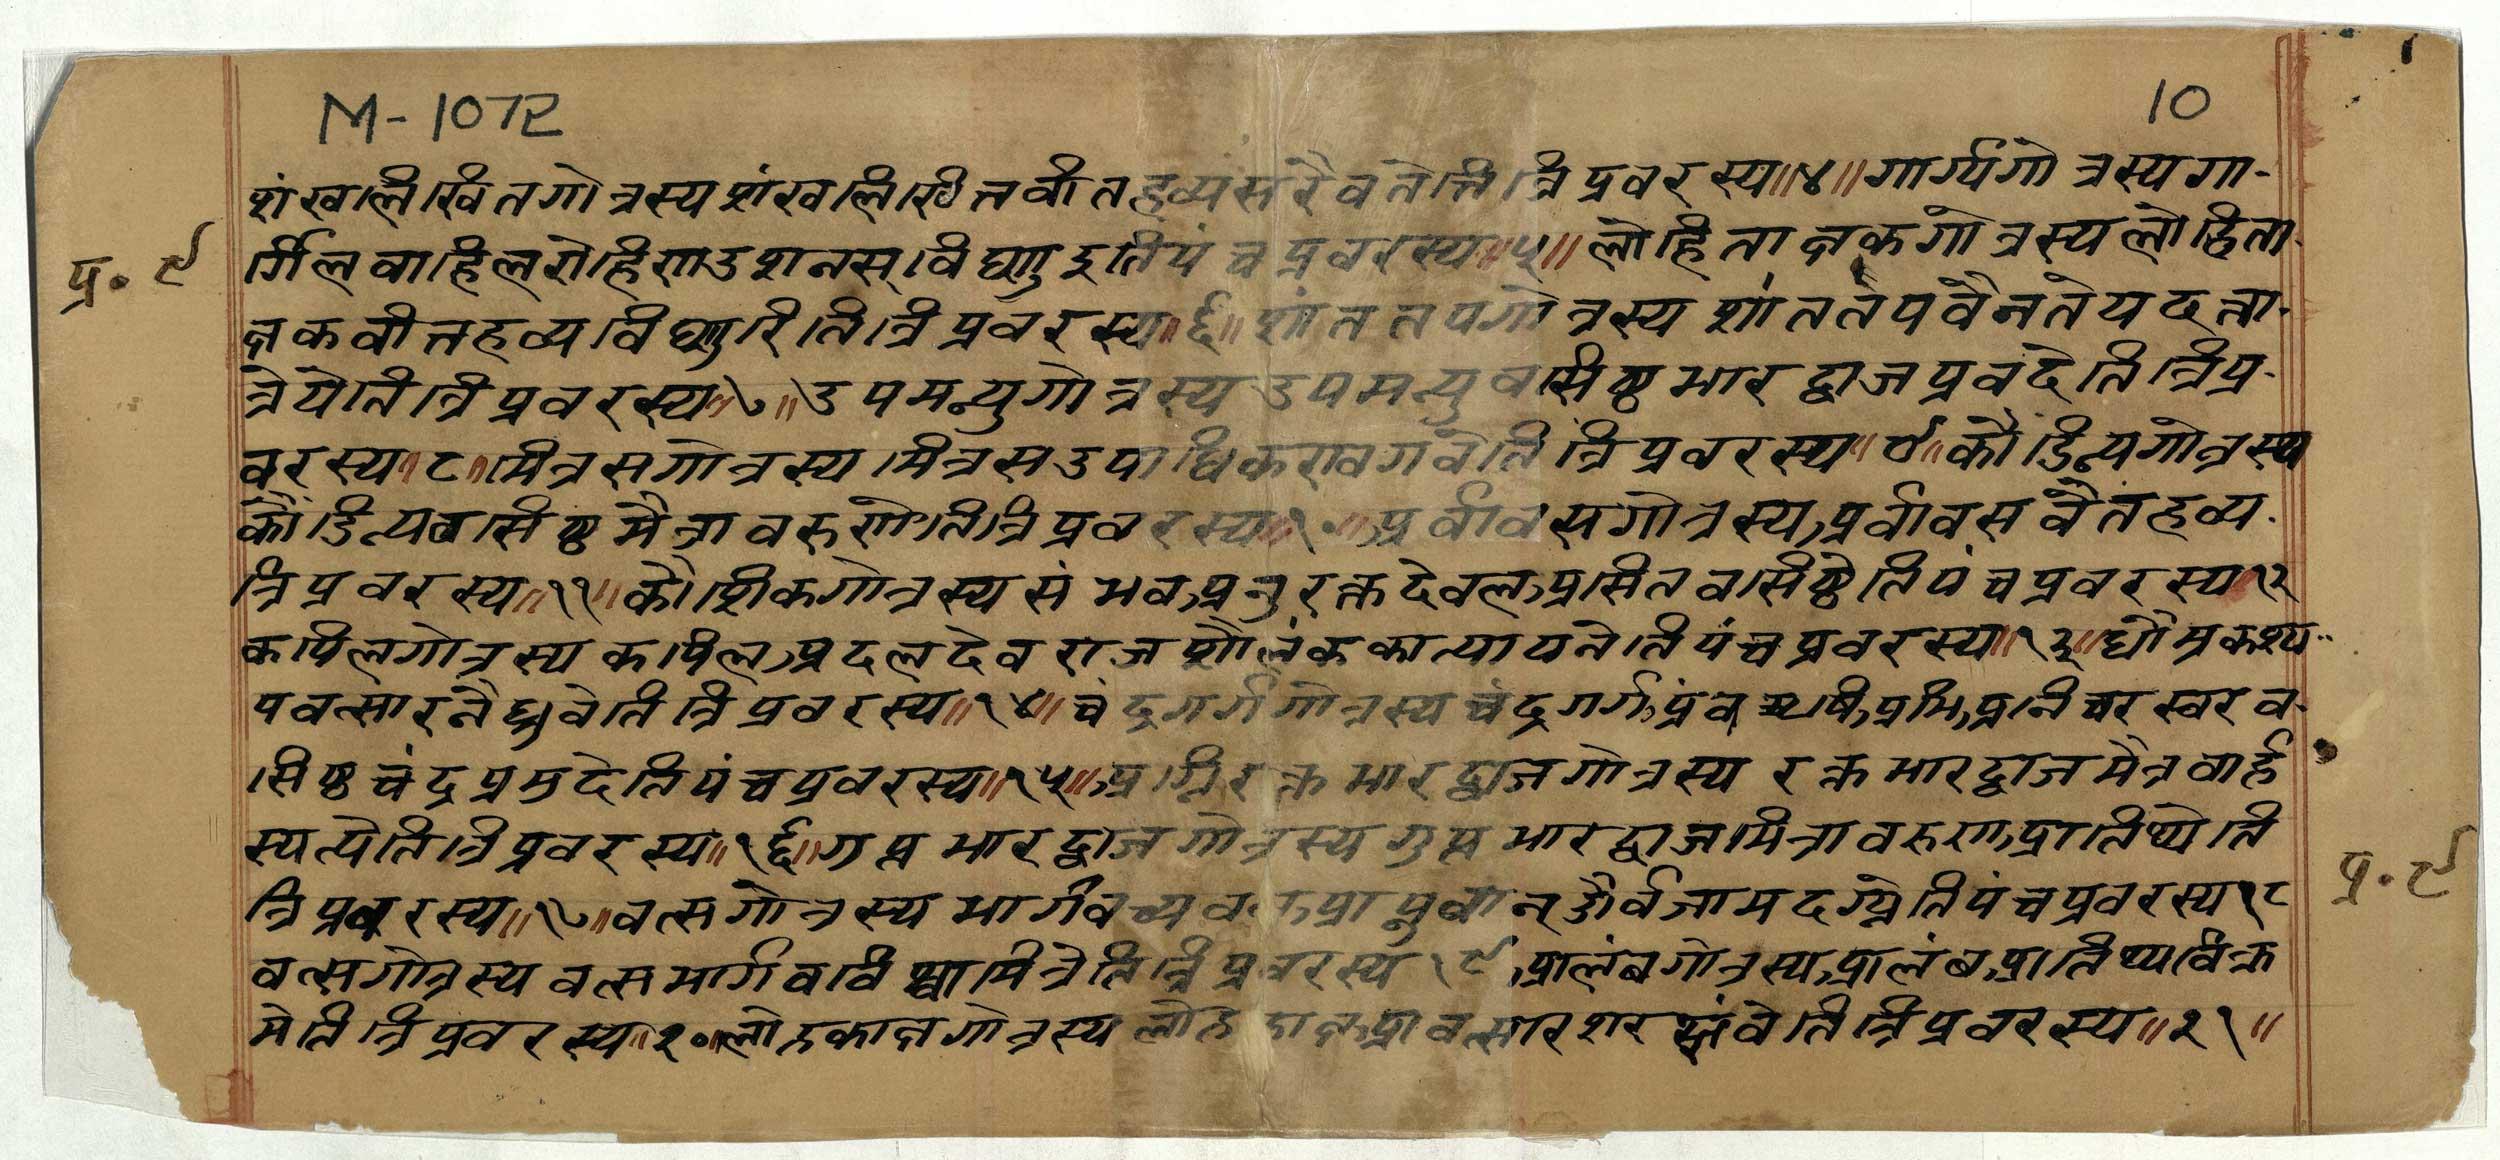 M-1072
10
शंखलिखितगोत्रस्य शंखलिखितवीतहव्यंसरैवतेति त्रिप्रवरस्य॥४॥गार्ग्यगोत्रस्य गा-
र्गिलवाहिलरोहिणउशनस्
पंचप्रवरस्य॥५॥लोहिताक्षकगोत्रस्य लोहिता-
क्षकवीतहव्य
रितित्रिप्रवरस्य॥६॥शांततपगोत्रस्य शांततपवैनतेयदत्ता-
त्रेयेतित्रिप्रवरस्य॥७॥उपमन्युगोत्रस्य उपमन्युवसिष्ठभारद्वाजप्रवदेतित्रिप्र-
वरस्य॥८॥मित्रसगोत्रस्य मित्रस
त्रिप्रवरस्य॥९॥कौंडिन्यगोत्रस्य
कौंडिन्यवसिष्ठमैत्रावरुणेतित्रिप्रवरस्य॥१०॥
गोत्रस्य अर्वावसवैतहव्य-
त्रिप्रवरस्य॥११॥कौशिकगोत्रस्य संभव
देवल असितवसिष्ठेतिपंचप्रवरस्य १२
कपिलगोत्रस्य कपिल अदलदेवराजशौलंककात्यायनेतिपंचप्रवरस्य॥१३॥धौम्रकश्य-
पवत्सारनैध्रुवेतित्रिप्रवरस्य॥१४॥चंद्रगर्गगोत्रस्य चंद्रगर्ग
व-
सिष्ठचंद्रप्रमुदेतिपंचप्रवरस्य॥१५॥अग्निरक्तभारद्वाजगोत्रस्य रक्तभारद्वाजमैत्रवार्ह
स्पत्येतित्रिप्रवरस्य॥१६॥गुप्तभारद्वाजगोत्रस्य गुप्तभारद्वाजमित्रावरुणआतिथ्येति
त्रिप्रवरस्य॥१७॥वत्सगोत्रस्य भार्गवच्यवनआप्नुवान्और्वजामदग्न्येतिपंचप्रवरस्य १८
वत्सगोत्रस्य वत्सभार्गवविश्वामित्रेतित्रिप्रवरस्य १९ आलंबगोत्रस्य आलंबआतिथ्यविक्र
मेतित्रिप्रवरस्य॥२०॥लोहकाक्षगोत्रस्य लोहकाक्षआवत्सार
तित्रिप्रवरस्य॥२१॥
प्र॰ ९
प्र॰ ९